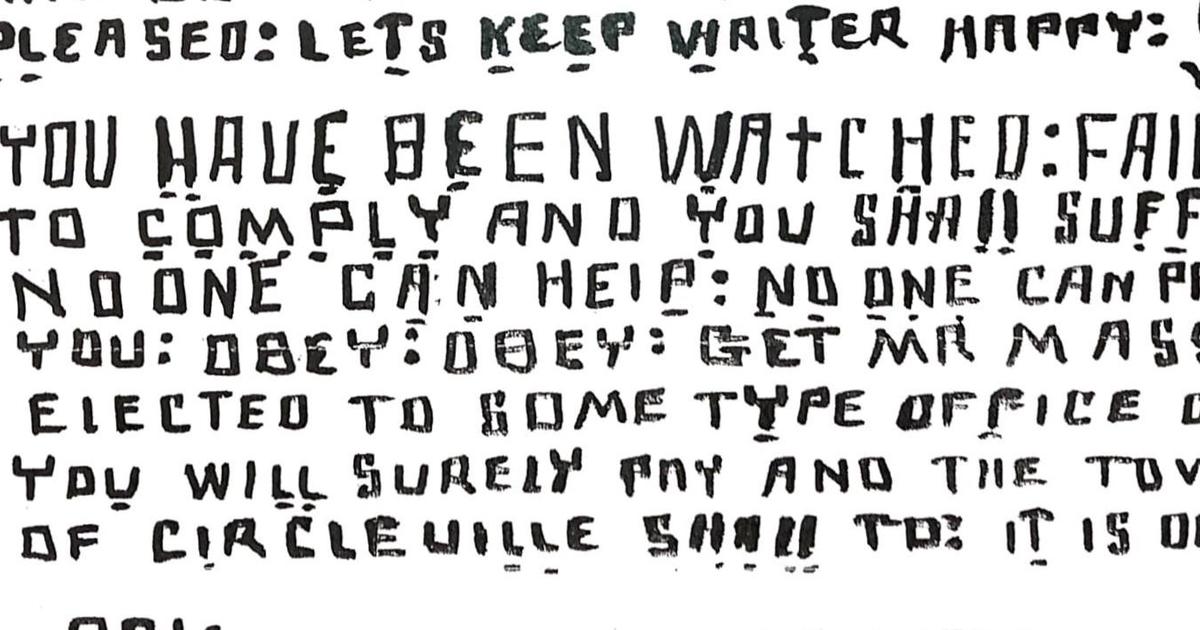 PLEASED: LETS KEEP WRITER HAPPY:
YOU HAVE BEEN WATCHED: FAI
TO COMPLY AND YOU SHALL SUFF
NO ONE CAN HELP: NO ONE CAN P
YOU: OBEY: OBEY: GET MR MASS
ELECTED TO SOME TYPE OFFICE O
YOU WILL SURELY PAY AND THE TOW
OF CIRCLEVILLE SHALL TO: IT IS